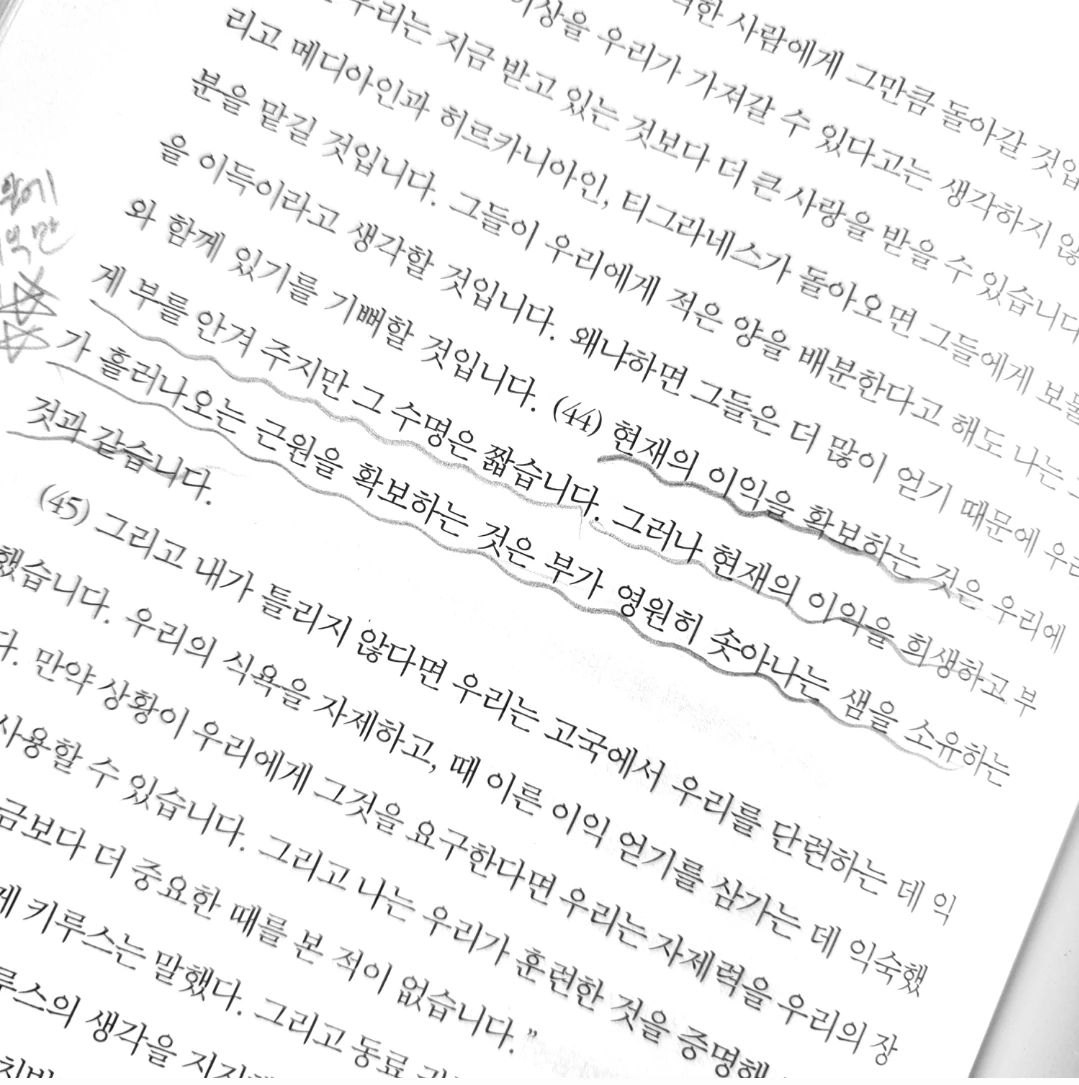 사람에게 그만큼 돌아갈 것입
이상을 우리가 가져갈 수 있다고는 생각하지 않
우리는 지금 받고 있는 것보다 더 큰 사랑을 받을 수 있습니다
리고 메디아인과 히르카니아인, 티그라네스가 돌아오면 그들에게 보물
분을 맡길 것입니다. 그들이 우리에게 적은 양을 배분한다고 해도 나는
을 이득이라고 생각할 것입니다. 왜냐하면 그들은 더 많이 얻기 때문에 우리
와 함께 있기를 기뻐할 것입니다. (44) 현재의 이익을 확보하는 것은 우리에
게 부를 안겨 주지만 그 수명은 짧습니다. 그러나 현재의 이익을 희생하고 부
가 흘러나오는 근원을 확보하는 것은 부가 영원히 솟아나는 샘을 소유하는
것과 같습니다.
(45) 그리고 내가 틀리지 않다면 우리는 고국에서 우리를 단련하는 데 익
했습니다. 우리의 식욕을 자제하고, 때 이른 이익 얻기를 삼가는 데 익숙했
다. 만약 상황이 우리에게 그것을 요구한다면 우리는 자제력을 우리의 장
사용할 수 있습니다. 그리고 나는 우리가 훈련한 것을 증명해
금보다 더 중요한 때를 본 적이 없습니다.”
게 키루스는 말했다. 그리고 동료
루스의 생각을